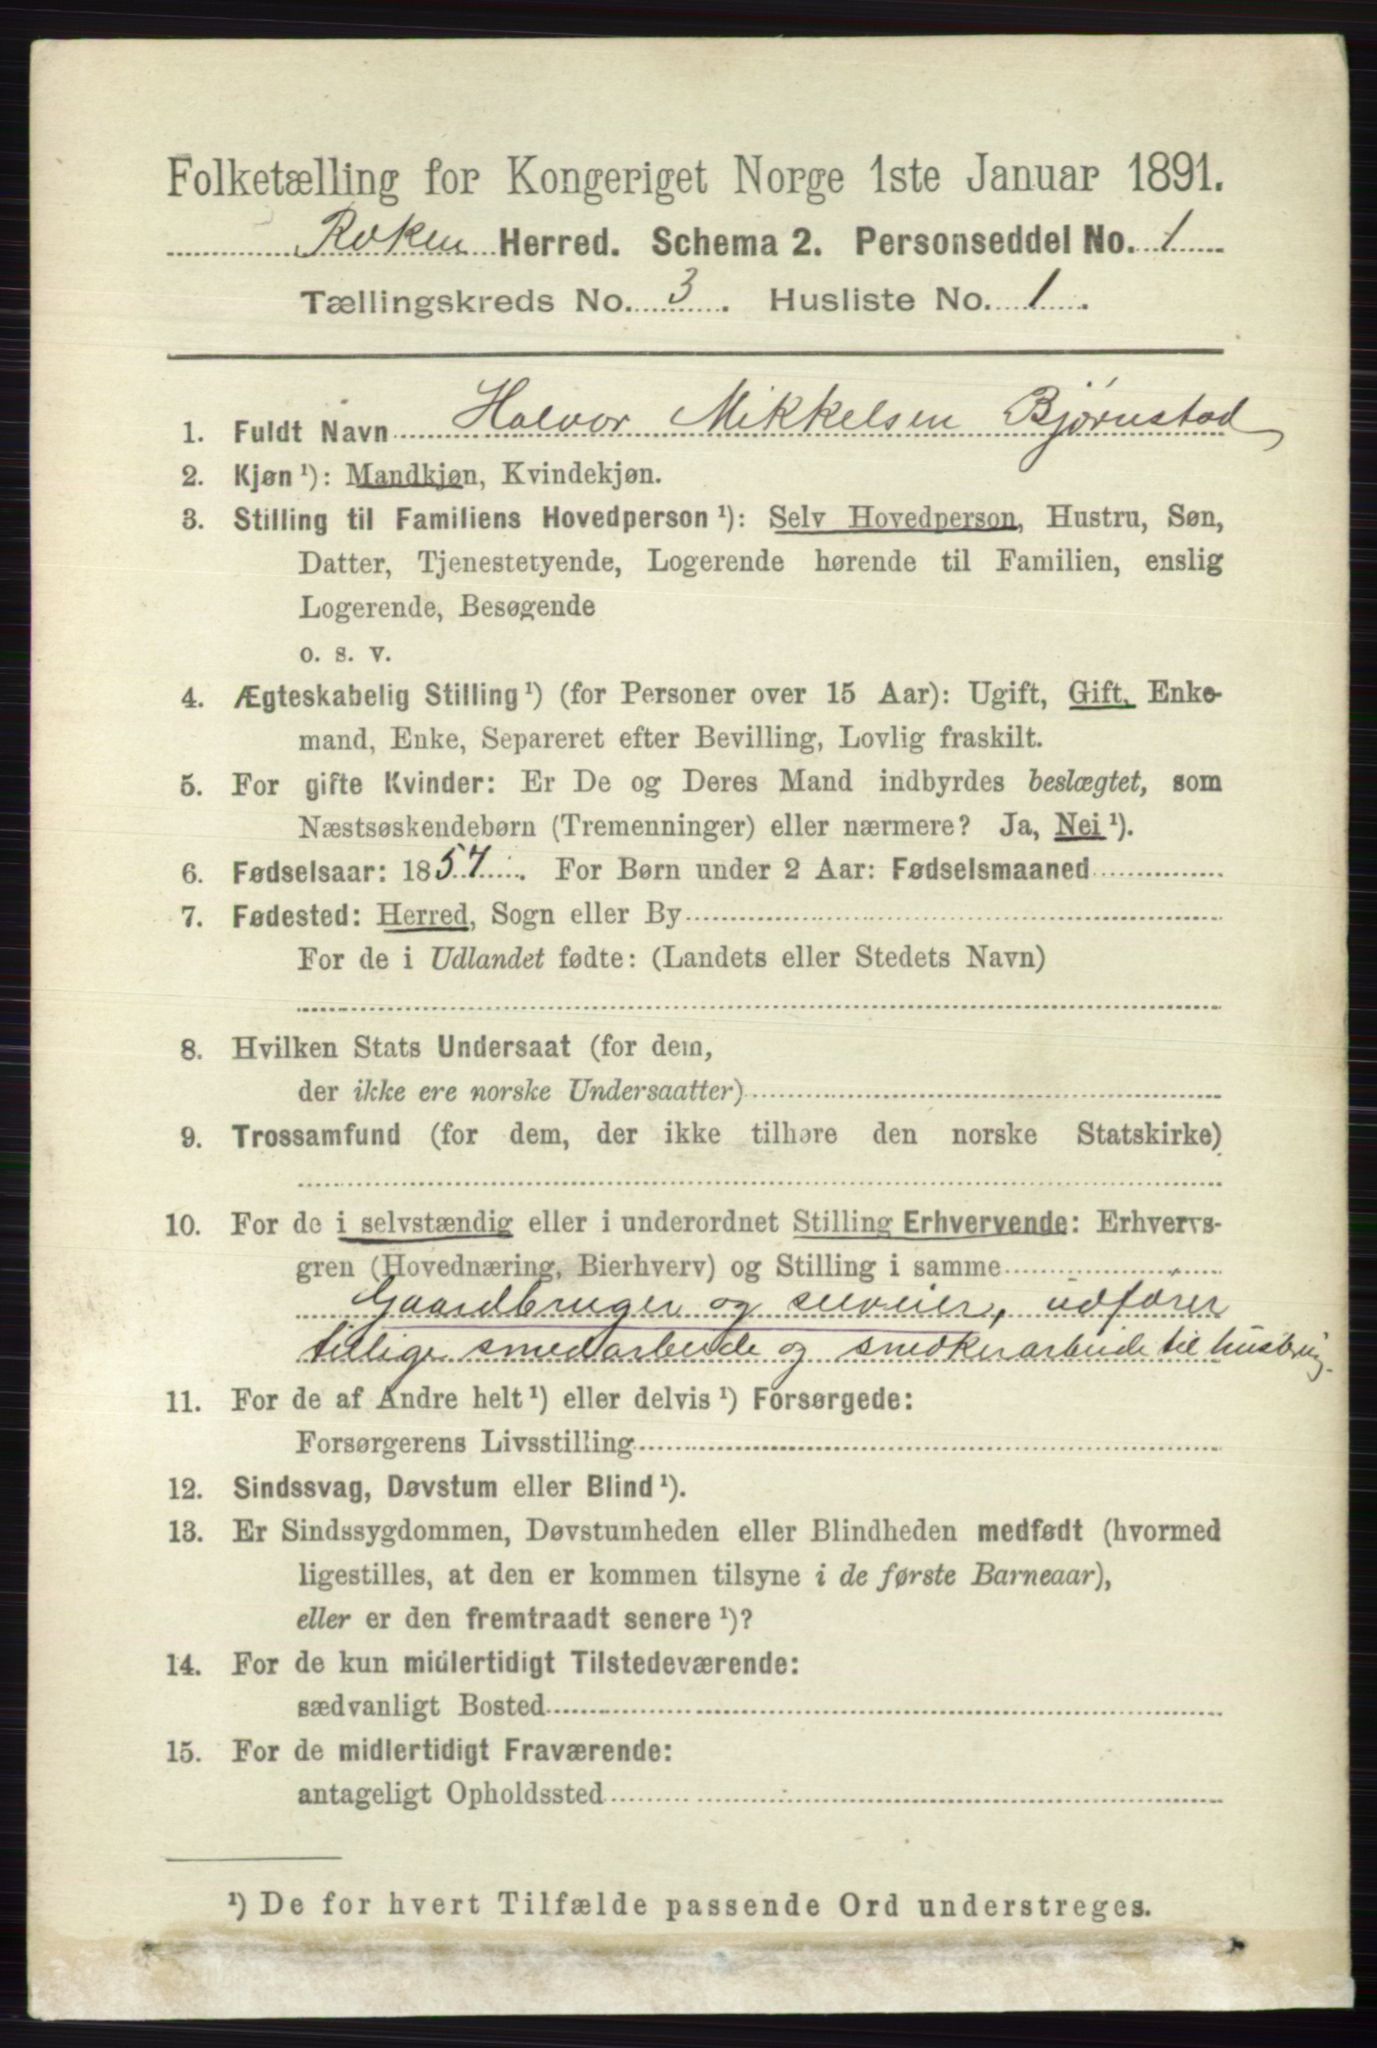 Folketælling for Kongeriget Norge 1ste Januar 1891.
Røken Herred. Schema 2. Personseddel No. 1
Tællingskreds No. 3. Husliste No. 1.
1. Fuldt Navn Halvor Mikkelsen Bjørnstad
2. Kjøn ¹): Mandkjøn, Kvindekjøn.
3. Stilling til Familiens Hovedperson ¹): Selv Hovedperson, Hustru, Søn,
Datter, Tjenestetyende, Logerende hørende til Familien, enslig
Logerende, Besøgende
o. s. v.
4. Ægteskabelig Stilling ¹) (for Personer over 15 Aar): Ugift, Gift, Enke-
mand, Enke, Separeret efter Bevilling, Lovlig fraskilt.
5. For gifte Kvinder: Er De og Deres Mand indbyrdes beslægtet, som
Næstsøskendebørn (Tremenninger) eller nærmere? Ja, Nei ¹).
6. Fødselsaar: 1857. For Børn under 2 Aar: Fødselsmaaned
7. Fødested: Herred, Sogn eller By
For de i Udlandet fødte: (Landets eller Stedets Navn)
8. Hvilken Stats Undersaat (for dem,
der ikke ere norske Undersaatter)
9. Trossamfund (for dem, der ikke tilhøre den norske Statskirke)
10. For de i selvstændig eller i underordnet Stilling Erhvervende: Erhvervs-
gren (Hovednæring, Bierhverv) og Stilling i samme
Gaardbruger og selveier, udfører
tillige smedarbeide og snedkerarbeide til husbrug.
11. For de af Andre helt ¹) eller delvis ¹) Forsørgede:
Forsørgerens Livsstilling
12. Sindssvag, Døvstum eller Blind ¹).
13. Er Sindssygdommen, Døvstumheden eller Blindheden medfødt (hvormed
ligestilles, at den er kommen tilsyne i de første Barneaar),
eller er den fremtraadt senere ¹)?
14. For de kun midlertidigt Tilstedeværende:
sædvanligt Bosted
15. For de midlertidigt Fraværende:
antageligt Opholdssted
¹) De for hvert Tilfælde passende Ord understreges.